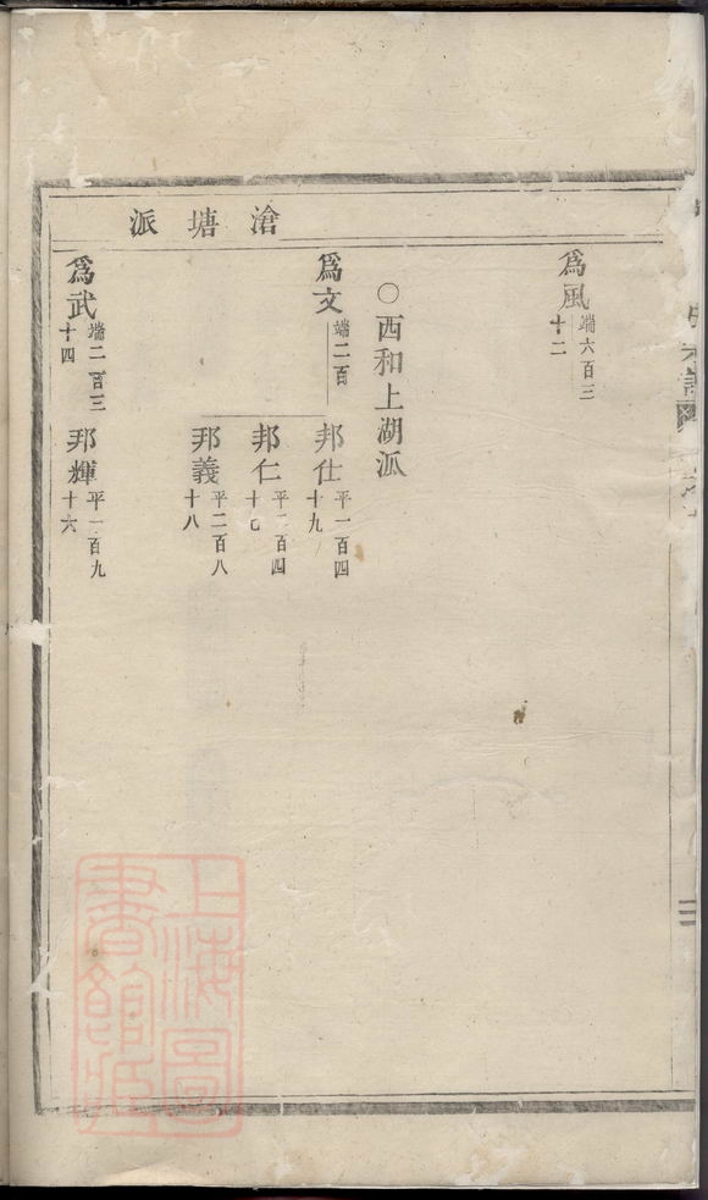 滄塘派
爲風
端六百三
十二
○西和上湖派
爲文
端二百
邦仕
平一百四
十九
邦仁
平二百四
十七
邦義
平二百八
十八
爲武
端二百三
十四
邦輝
平一百九
十六
上海圖
書館藏